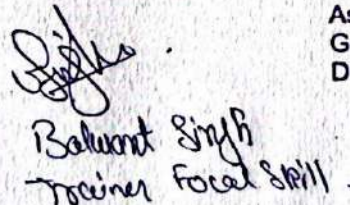 As
G
D
Balwant Singh
Trainer Focal Skill